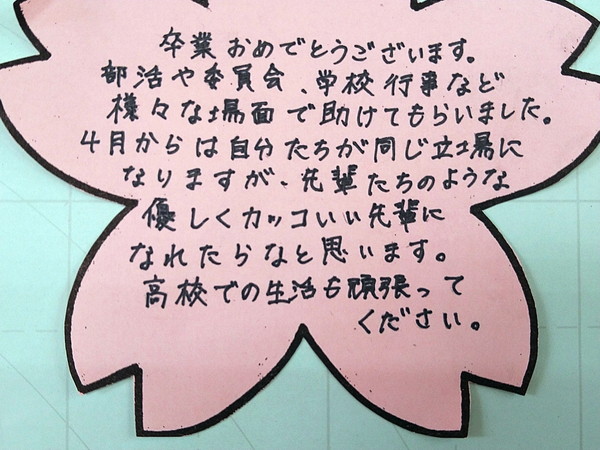 卒業おめでとうございます。
部活や委員会、学校行事など
様々な場面で助けてもらいました。
4月からは自分たちが同じ立場に
なりますが、先輩たちのような
優しくカッコいい先輩に
なれたらなと思います。
高校での生活も頑張って
ください。